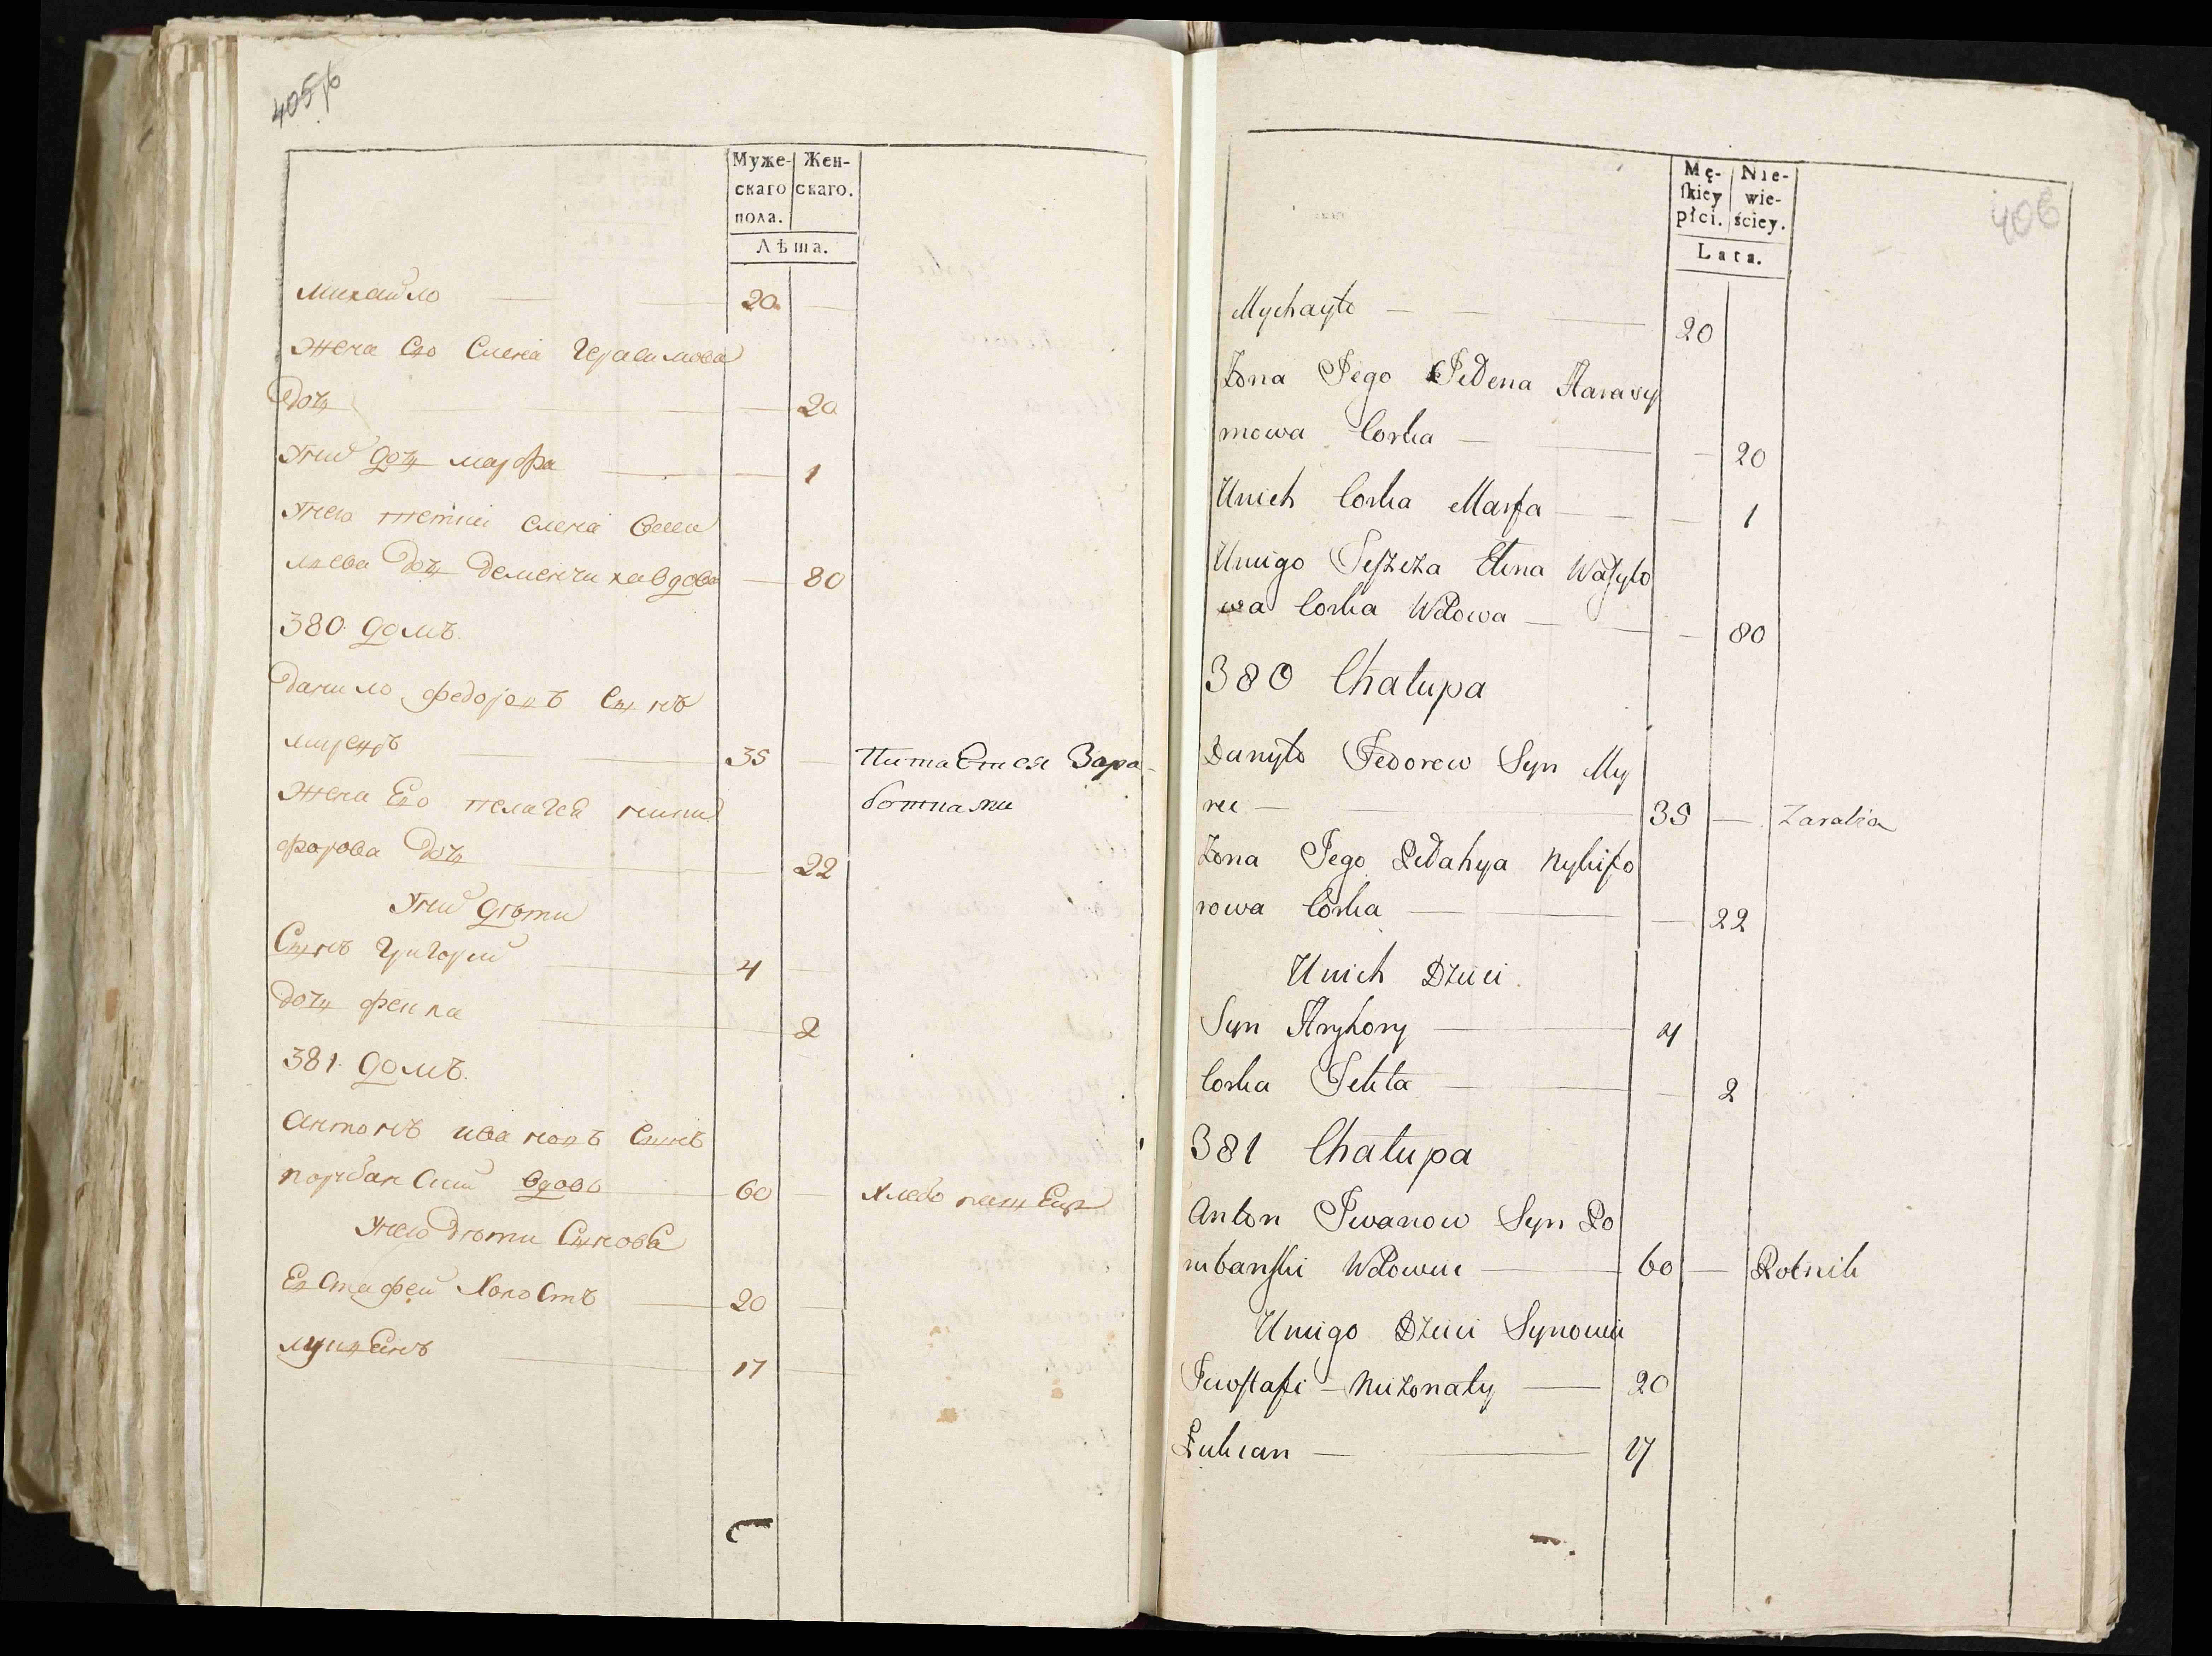 405/б
Муже- Жен-
скаго скаго.
пола.
Лѣта.
Михайло 20
Жена Его Елена Герасимова
Доч 20
Уних доч марфа 1
Унего
лева Доч вдова 80
380. домъ.
Данило федоровъ Сынъ
35 Питается Зара-
Жена Его пелагея ники ботками
форова Доч 22
Унихъ дѣти
Сынъ Григорий 4
Доч фекла 2
381. домъ.
Антонъ ивановъ Сынъ
вдовъ 60 Хлебо пашец
Унего Дѣти Сынове
Евстафей Холостъ 20
лукиянъ 17
406
Mę- Nie-
skiey wie-
płci. ściey.
Lata.
Mychayło 20
Żona Jego Harasy
mowa Corka 20
Unich Corka Marfa 1
Uniego Elena Wasylo
wa Corka Wdowa 80
380 Chałupa
Danyło Fedorow Syn My
35 Zarabia
Żona Jego Pelahya Nykifo
rowa Corka 22
Unich Dzieci
Syn Hryhory 4
Corka Fekla 2
381 Chałupa
Anton Jwanow Syn Po
rubanski Wdowiec 60 Rolnik
Uniego Dzieci Synowie
Jewstafi Nieżonaty 20
Łukian 17